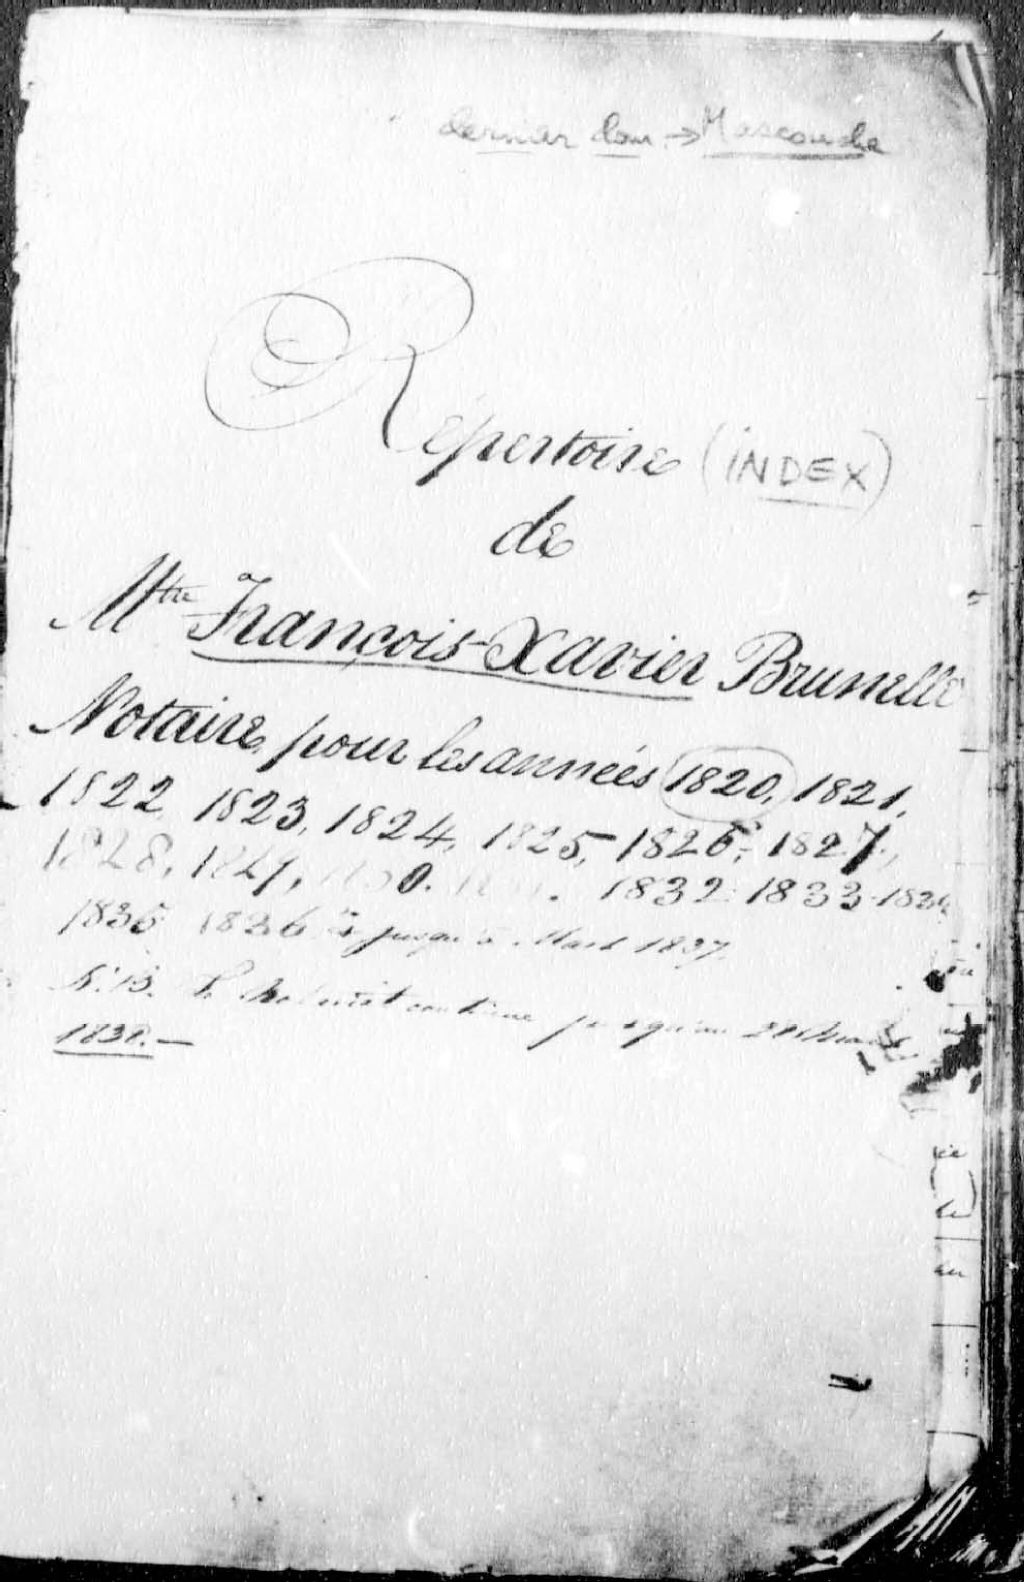 dernier dom. → Mascouche
Répertoire (INDEX)
de
Mtre François-Xavier Brunelle
Notaire, pour les années 1820, 1821,
1822, 1823, 1824, 1825, 1826, 1827,
1828, 1829, 1830. 1832. 1833. 1834
1835 1836 & jusqu'à Mars 1837.
N.B. Le continue jusqu'au
1838.—